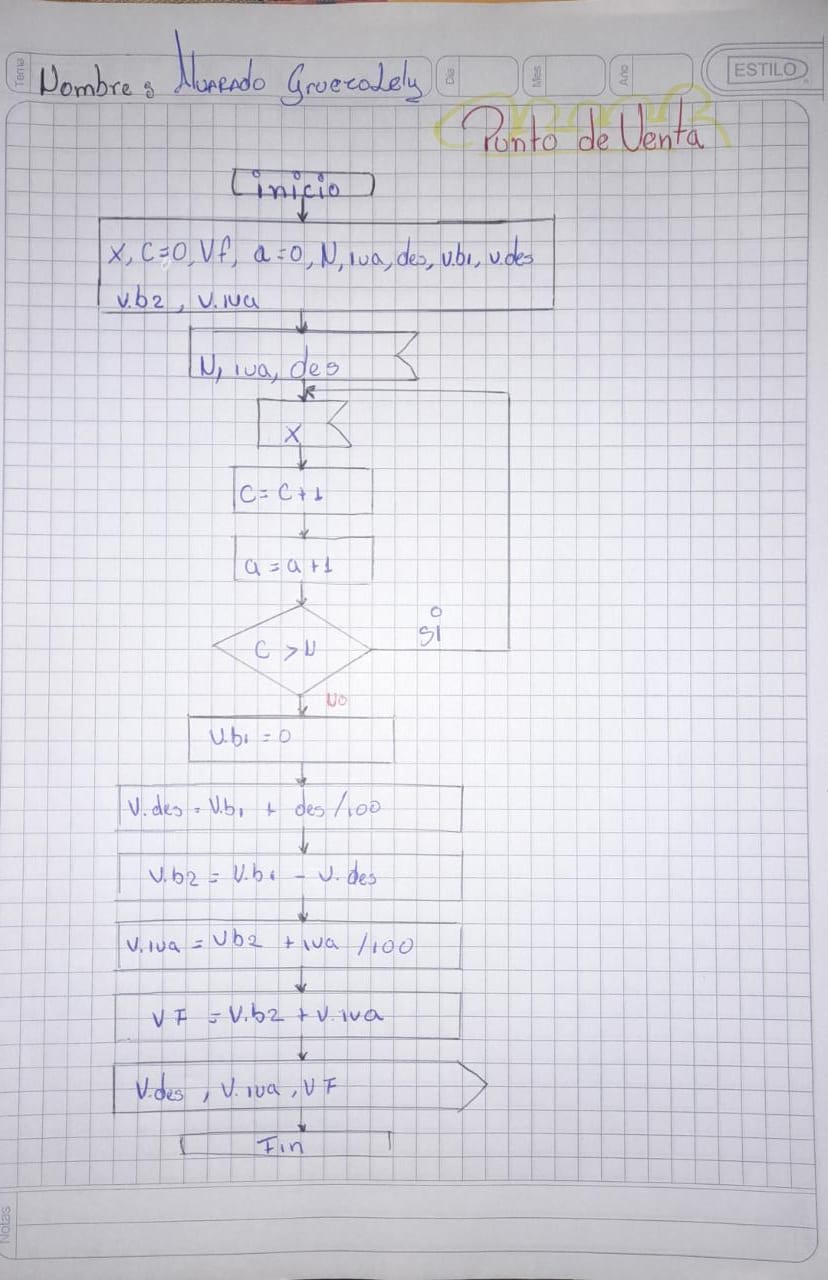 Tema
Nombre: Alvarado Grueso Lely
Dia
Mes
Año
ESTILO
Punto de Venta
inicio
X, C=0, Vf, a=0, N, iva, des, v.b1, v.des
v.b2, v.iva
N, iva, des
X
C = C+1
a = a+1
C > N
SI
NO
v.b1 = 0
V.des = V.b1 + des /100
V.b2 = V.b1 - v.des
V.iva = Vb2 + iva /100
VF = V.b2 + v.iva
V.des, V.iva, VF
Fin
Notas